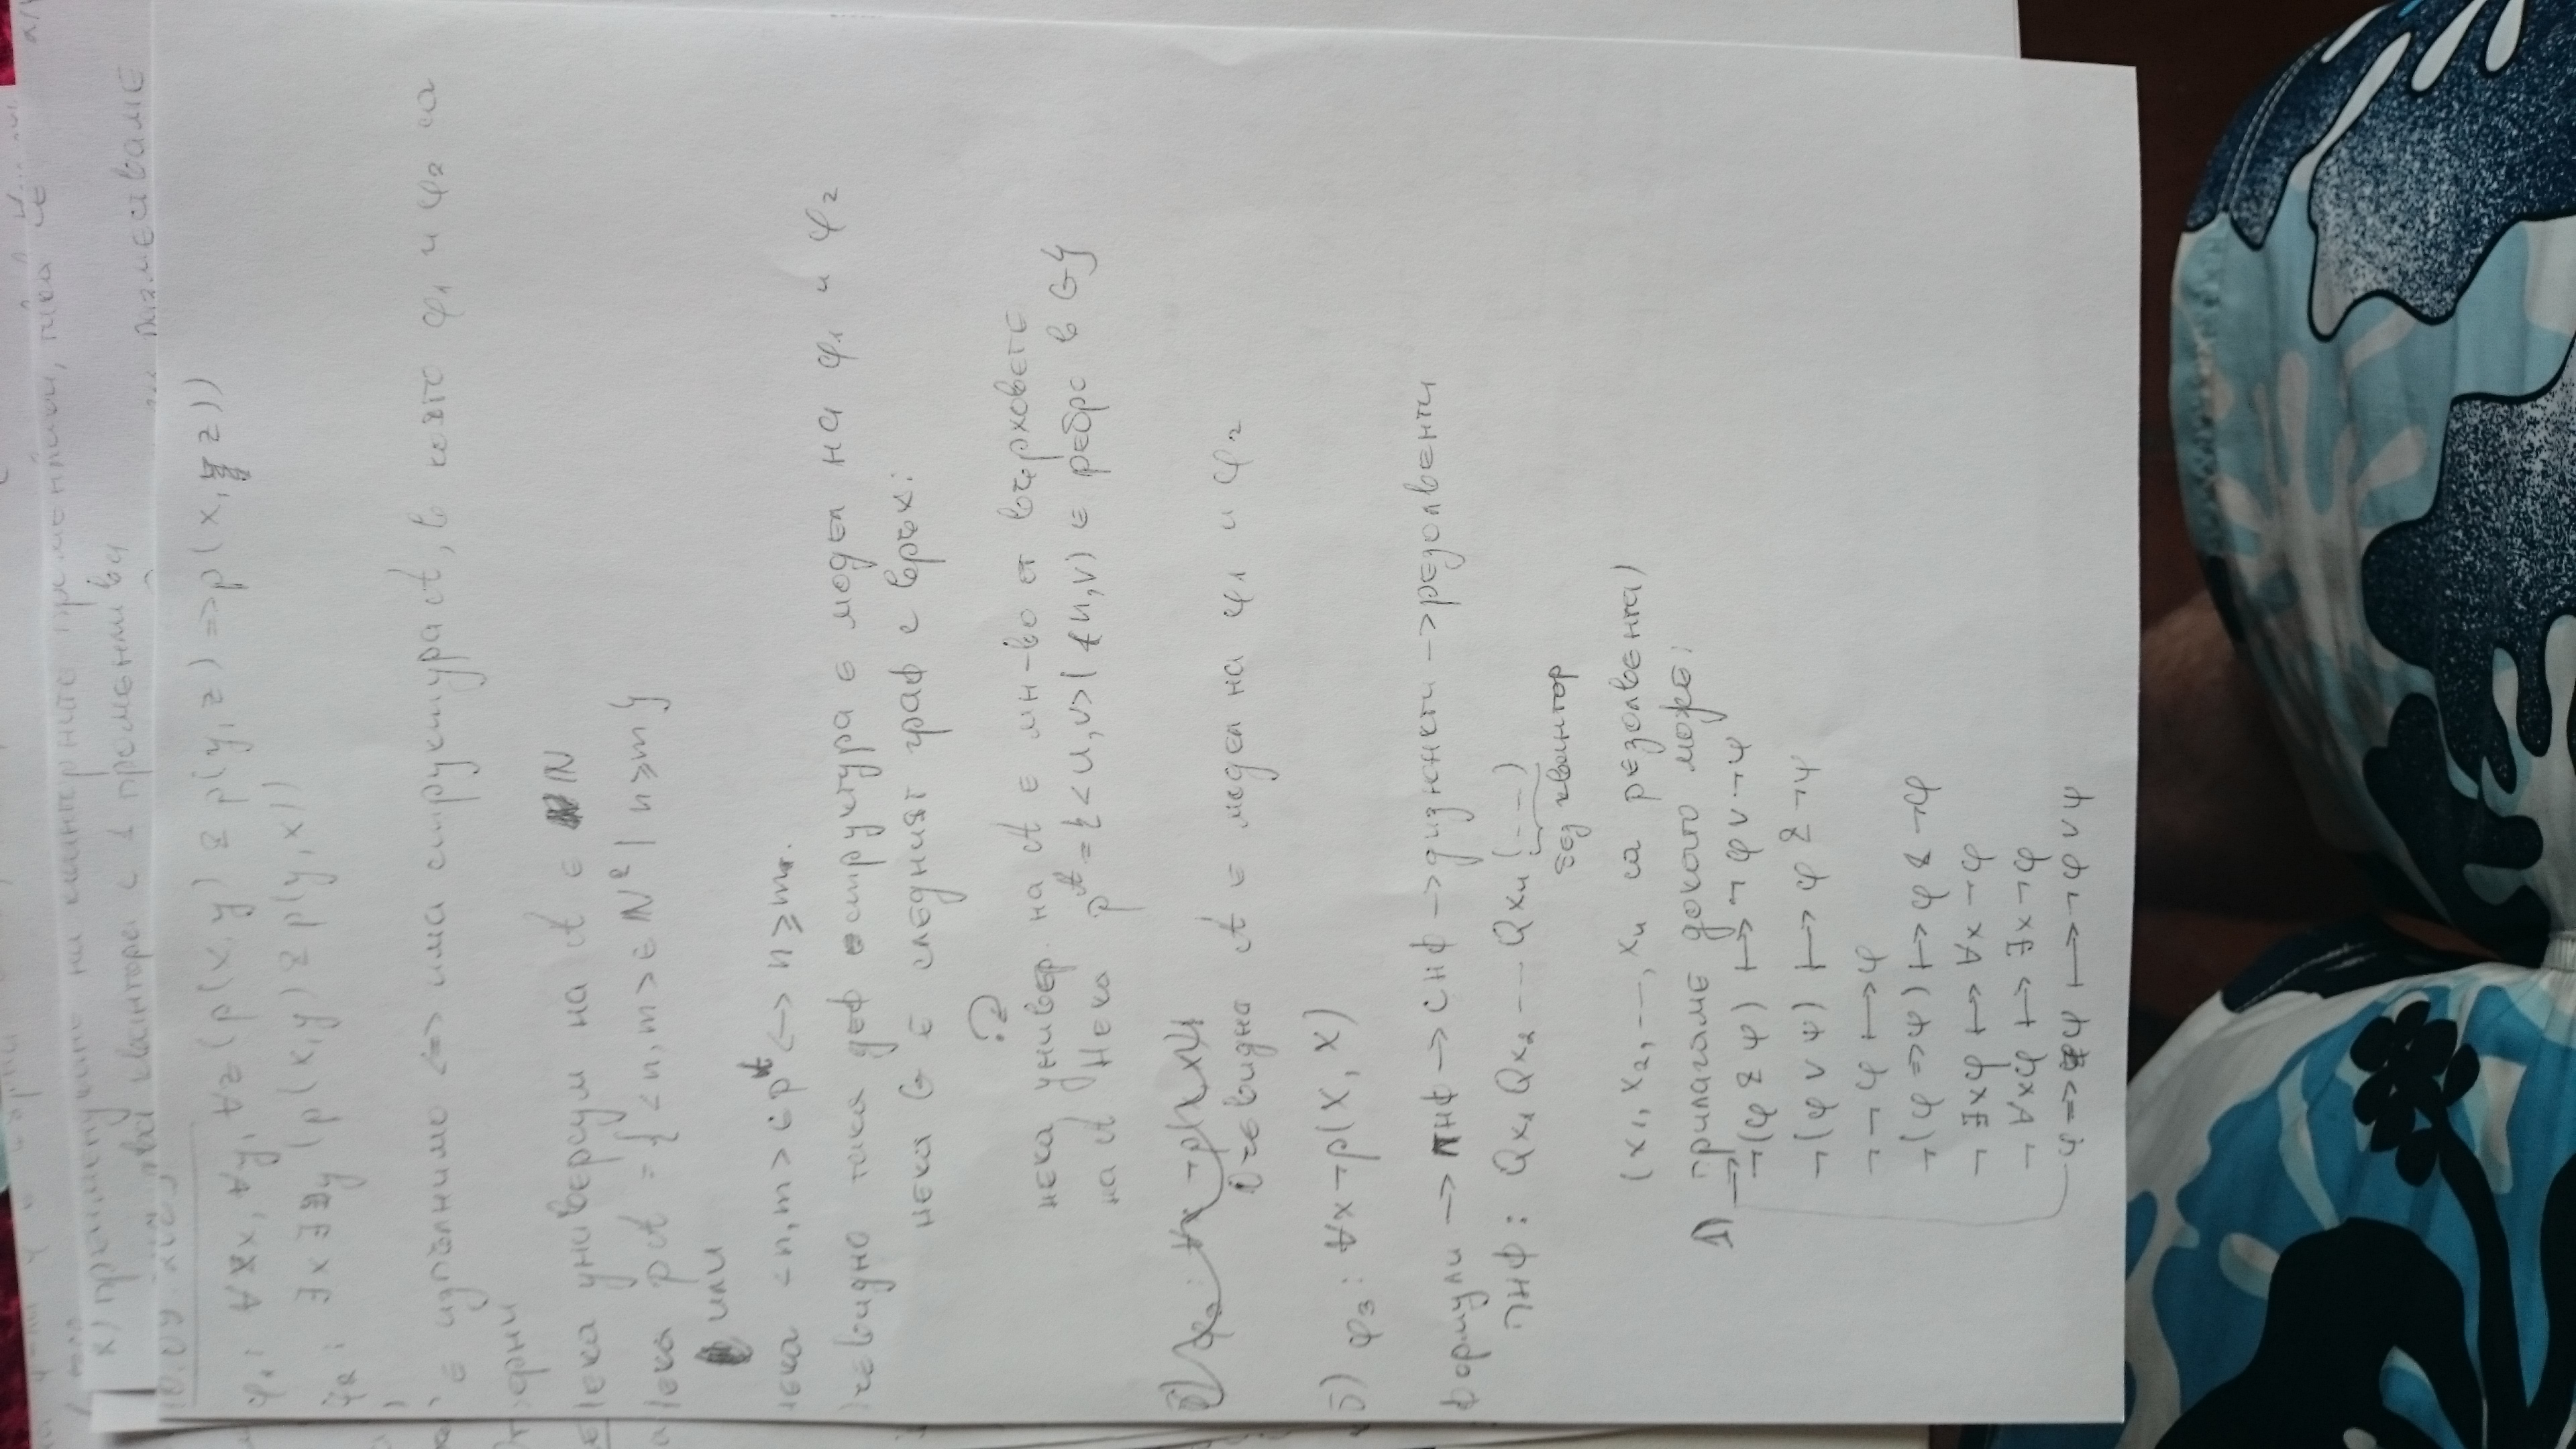 х) премахване на
два квантора с 1 променлива
φ₁: ∀x, ∀y, ∀z (p(x,y) & p(y,z) => p(x, z))
φ₂: ∃x ∃y (p(x,y) & p(y,x))
е изпълнимо <=> има структура A, в която φ₁ и φ₂ са
верни
нека универсум на A е N
нека p^A = {<n,m> ∈ N² | n ≥ m}
или
нека <n,m> ∈ p^A <-> n ≥ m.
Очевидно така деф структура е модел на φ₁ и φ₂
нека G е следният граф с връх:
нека универ. на A е мн-во от върховете
на A Нека p^A = {<u,v> | (u,v) е ребро в G}
Очевидно A е модел на φ₁ и φ₂
б) φ₃: ∀x ¬p(x,x)
формули -> ПНФ -> СНФ -> дизюнкти -> резолвенти
ПНФ: Qx₁ Qx₂ ... Qxₙ (...)
без квантор
(x₁, x₂, ..., xₙ са резолвента)
1) прилагаме докато може:
¬(φ & ψ) |-> ¬φ ∨ ¬ψ
¬(φ ∨ ψ) |-> ¬φ & ¬ψ
¬¬φ |-> φ
¬(φ => ψ) |-> φ & ¬ψ
¬∃xφ |-> ∀x¬φ
¬∀xφ |-> ∃x¬φ
φ => ψ |-> ¬φ ∨ ψ